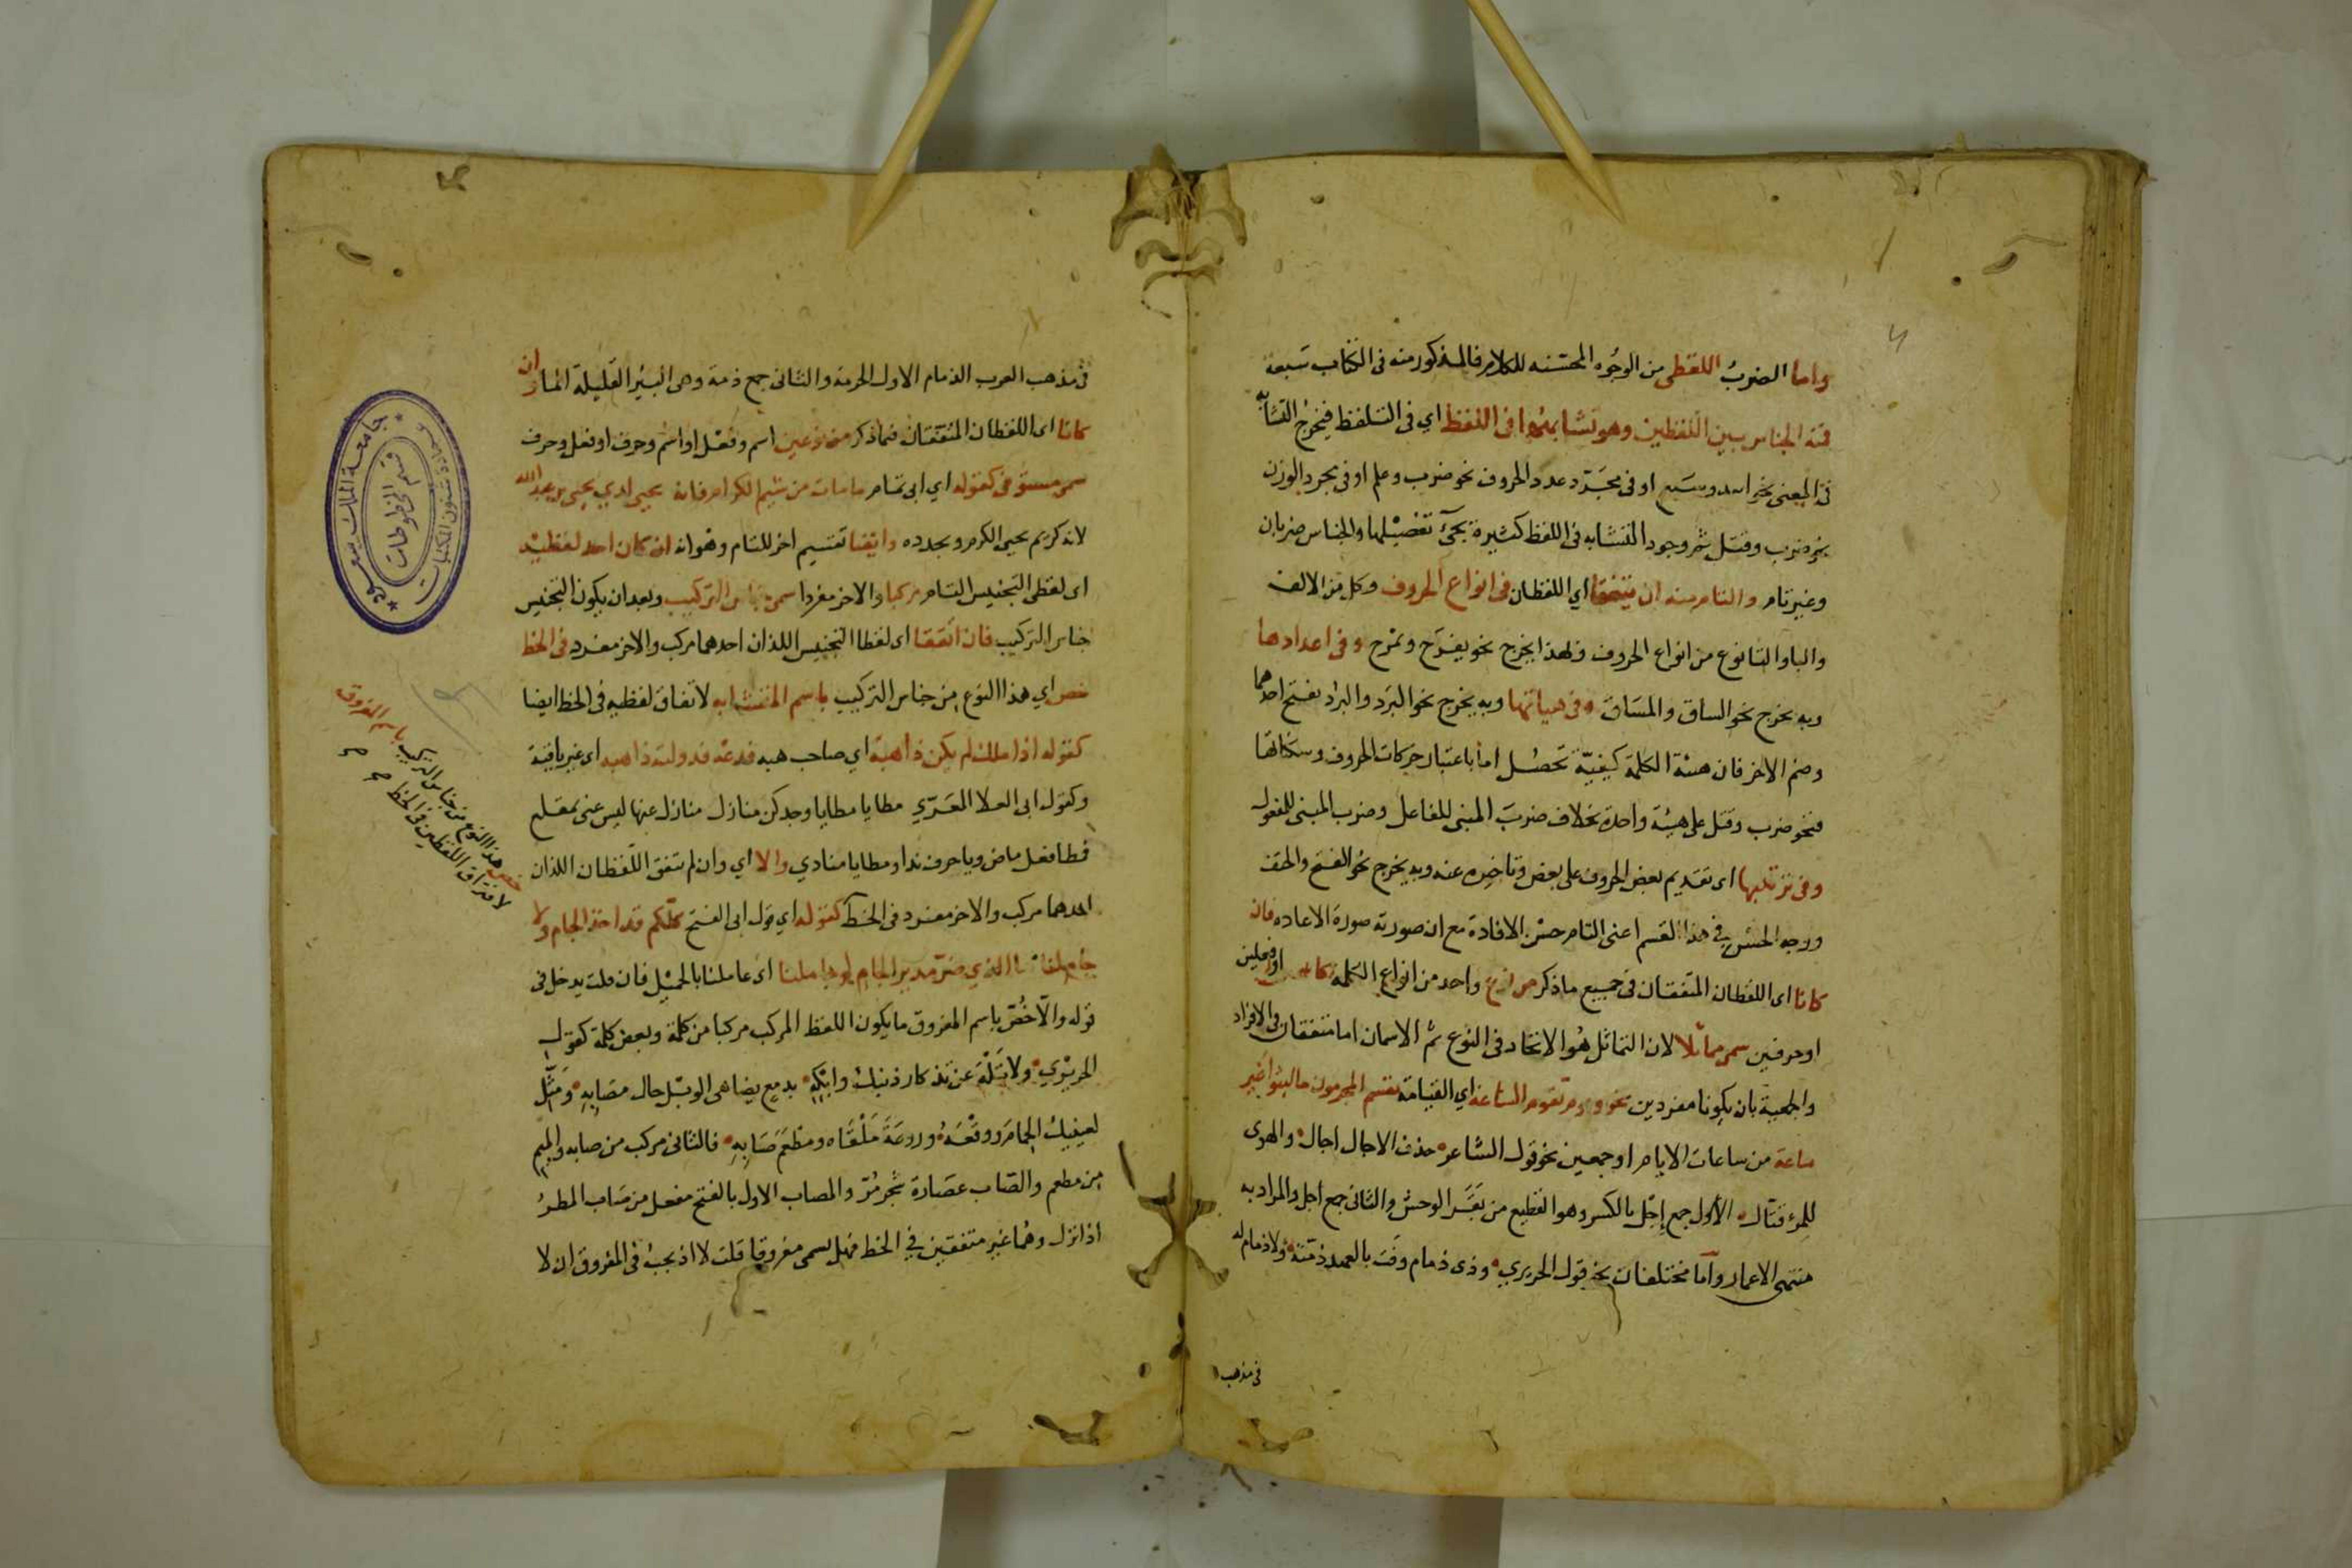 واما الضربُ اللفظى من الوجُوه المحسّنه للكلام فالمذكور منه فى الكتاب سَبعة
فمنه الجناس بين اللفظين وهو تشابههما فى اللفظ اي فى التلفظ فيخرج التشابه
فى المعنى نحو اسد وسَبع او فى مجَرّد عدد الحروف نحو ضرب وعلم او فى مجرد الوزن
نحو ضرب وقتل ثم وجود التشابه فى اللفظ كثيرة يجئ تفصيلها والجناس ضربان
وغير تام والتام منه ان يتفقا اي اللفظان فى انواع الحروف وكل من الالف
والباء والتا نوع من انواع الحروف ولهذا يخرج نحو يفرَح ويمْرح وفى اعدادها
وبه يخرج نحو الساق والمسَاق وفى هيأتها وبه يخرج نحو البَرد والبرُد بفتح احدهما
وضم الاخر فان هيئة الكلمة كيفيّة تحصُل لها باعتبار حركات الحروف وسكناتها
فنحو ضرب وقتل على هيئة واحدة بخلاف ضربَ المبنى للفاعل وضرب المبنى للمفعول
وفى ترتيبها اى تقديم بعض الحروف على بعض وتاخيره عنه وبه يخرج نحو الفتح والحتف
ووجه الحسْن فى هذا القسم اعنى التام حسْن الافادة مع ان صورته صورة الاعاده فان
كانا اى اللفظان المتفقان فى جميع ما ذكر من نوع واحد من انواع الكلمة كاسمين او فعلين
او حرفين سمى مماثلا لان التماثل هُو الاتحاد فى النوع ثم الاسمان اما متفقان فى الافراد
والجمعية بان يكونا مفردين نحو ويوم تقوم الساعة اي القيامة يقسم المجرمون ما لبثوا غير
ساعة من ساعات الايام او جمعين نحو قول الشاعر حدق الاجال اجال والهوى
للمرء قتّال الأول جمع إجْل بالكسر وهو القطيع من بقَر الوحش والثانى جمع اجل والمراد به
منتهى الاعمار وآمّا مختلفان نحو قول الحريري وذى ذمام وَفَت بالعهد ذمّته ولا ذمام له
فى مذهب
فى مذهب العرب الذمام الاول الحرمة والثانى جمع ذمة وهى البئر القليلة الماء وان
كانا اى اللفظان المتفقان فيما ذكر من نوعين اسم وفعْل او اسْم وحرف او فعل وحرف
سمى مستوفى كقوله اي ابى تمام ما مات من شيم الكرام فانه يحيى لدي يحيى بن عبد الله
لانه كريم يحيى الكرم ويجدده وايضا تقسيم اخر للتام وهو انه ان كان احد لفظيه
اى لفظى التجنيس التام مركبا والاخر مفردا سمى جناس التركيب وبعد ان يكون التجنيس
جناس التركيب فان اتفقا اى لفظا التجنيس اللذان احدهما مركب والاخر مفرد فى الخط
خص اي هذا النوع من جناس التركيب باسم المتشابه لاتفاق لفظيه فى الخط ايضا
كقوله اذا ملك لم يكن ذا هبة اي صاحب هبه فدعه فدولته ذاهبه اى غير باقية
وكقول ابى العلا المعَرّي مطايا مطايا وجدكن منازل منازل عنها ليس عنى بمقلع
فمطا فعل ماض ويا حرف ندا ومطايا منادي والا اي وان لم يتفق اللفظان اللذان
احدهما مركب والاخر مفرد فى الخط كقوله اي قول ابى الفتح كلّكم قد اخذ الجام ولا
جام لنا ما الذي ضرّ مدير الجام لو جاملنا اى عاملنا بالجميْل فان قلت يدخل فى
قوله والّا خُصّ باسم المفروق ما يكون اللفظ المركب مركبا من كلمة وبعض كلمة كقول
الحريْرى ولا تَلْهَ عن تذكار ذنبك وابْكِهِ بدمع يضاهى الوبْل حال مصَابِهِ ومَثِّلْ
لعينيك الحِمامَ ووقْعَهُ وروعَةَ مَلْقَاه ومطْعَمَ صَابِهِ فالثانى مركب من صابه والميم
من مطعم والصّاب عصَارة شجر مُرّ والمصاب الاول بالفتح مفعل من صَاب المطرُ
اذا نزل وهُما غير متفقين في الخط فهل يسمى مفروقا قلت لا اذ يجبُ فى المفروق ان لا
خص هذا النوع من جناس التركيب باسم المفروق
لافتراق اللفظين فى الخط صح صح
جامعة الملك سعود
عمادة شئون المكتبات
قسم المخطوطات